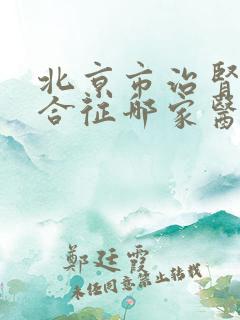 北京市治腎
合征哪家醫
鄭廷霞
未经同意禁止转载